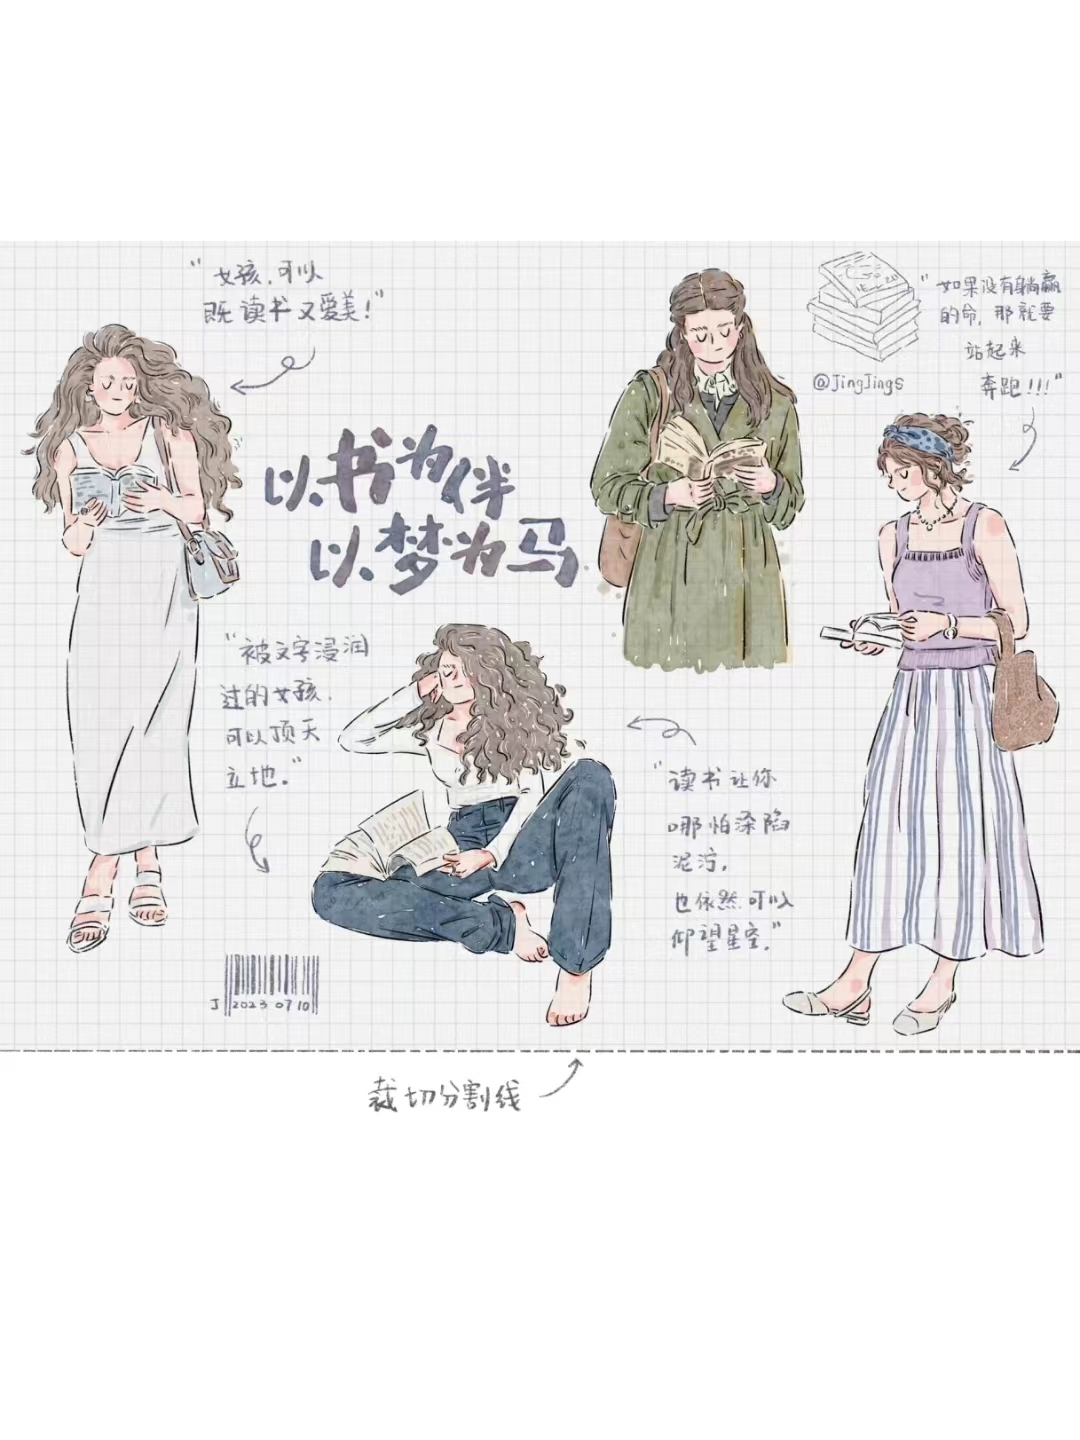 “女孩,可以
既读书又爱美!”
“如果没有躺赢
的命,那就要
站起来
奔跑!!!”
@JingJings
以书为伴
以梦为马
“被文字浸润
过的女孩,
可以顶天
立地。”
“读书让你
哪怕深陷
泥泞,
也依然可以
仰望星空。”
J 2023 07 10
裁切分割线